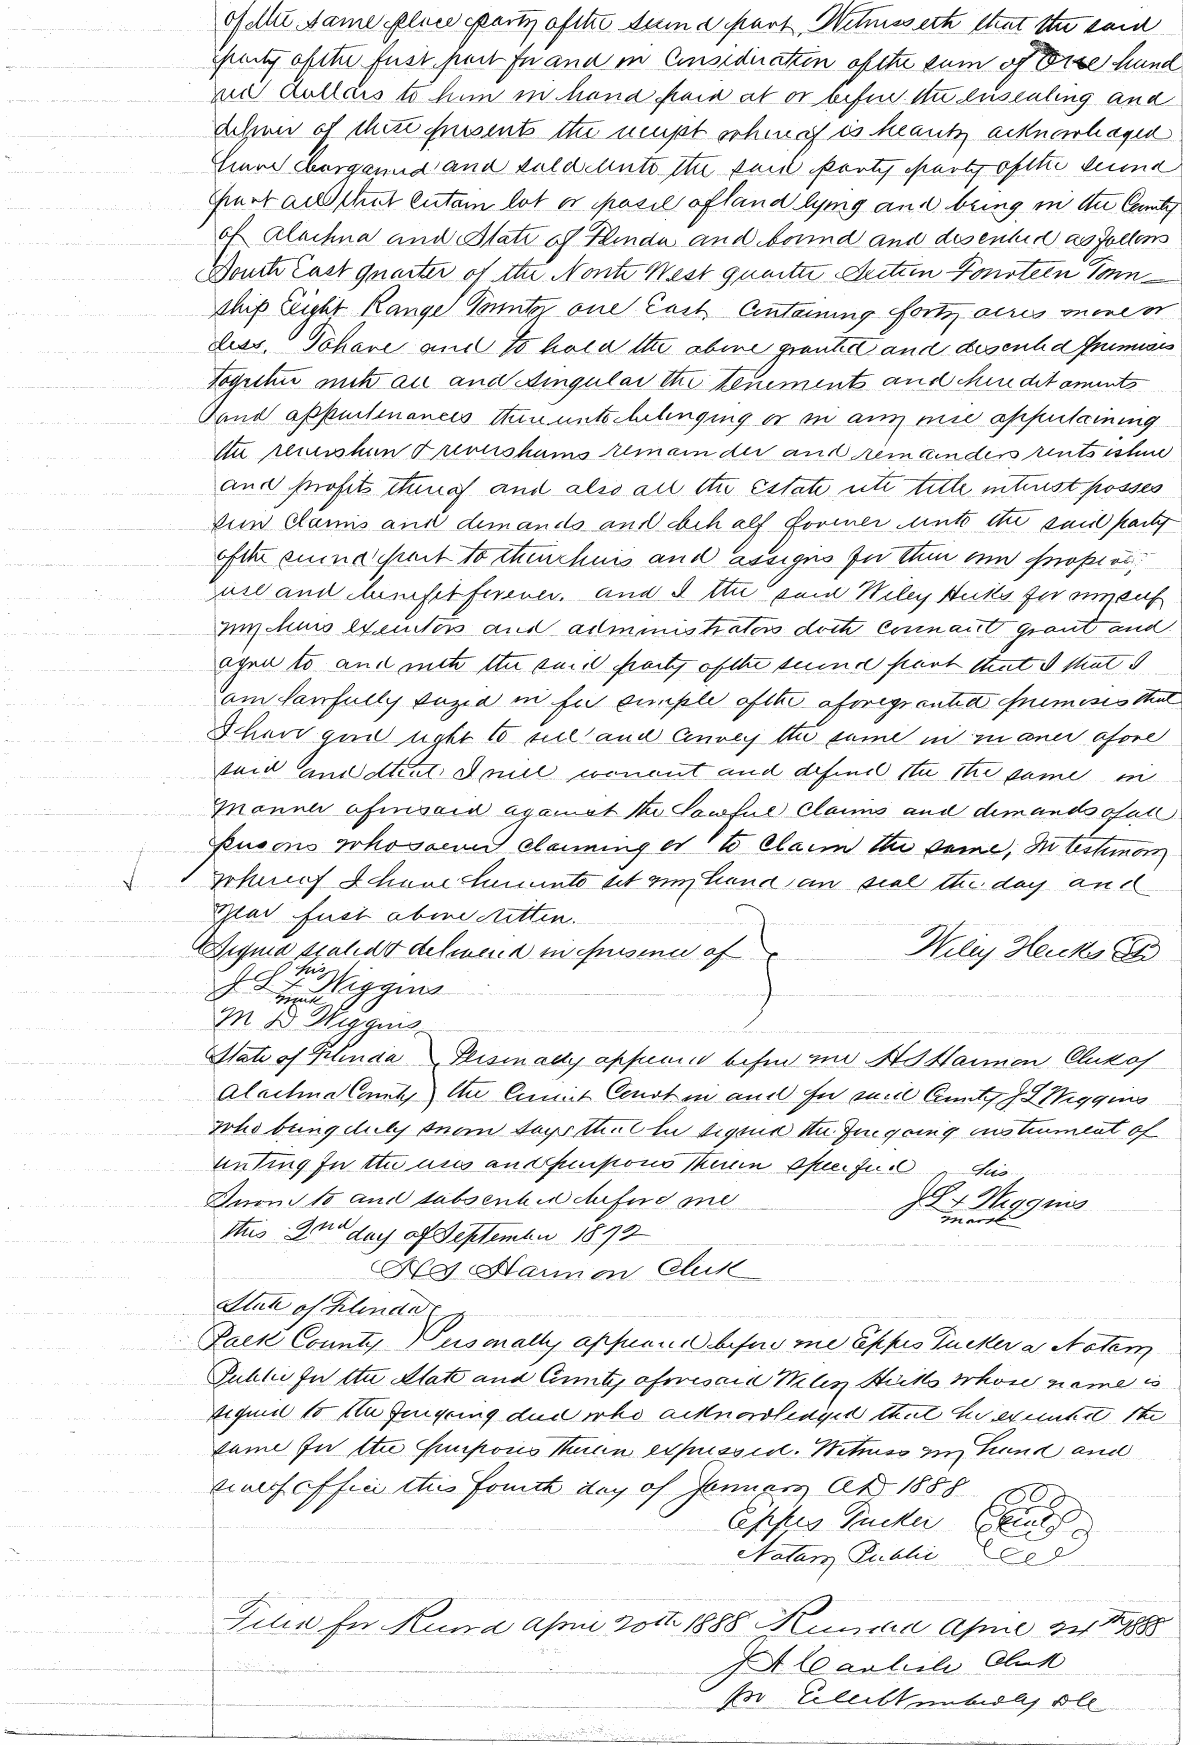 of the same place party of the second part, Witnesseth that the said
party of the first part for and in Consideration of the sum of One hund
red dollars to him in hand paid at or before the ensealing and
deliver of these presents the receipt whereof is hearby acknowledged
have bargained and sold unto the said party party of the second
part all that certain lot or pasel of land lying and being in the County
of Alachua and State of Florida and bound and described as follows
South East quarter of the North West quarter Section Fourteen Town
ship Eight Range Twenty one East Containing forty acres more or
less. To have and to hold the above granted and described premises
together with all and singular the tenements and hereditaments
and appurtenances thereunto belonging or in any wise appertaining
the revershun & revershuns remainder and remainders rents ishue
and profits thereof and also all the Estate rite title interest posses
sion claims and demands and behalf forever unto the said party
of the second part to their heirs and assigns for their own proper
use and benefit forever. and I the said Wiley Hicks for myself
my heirs executors and administrators doth covenant grant and
agree to and with the said party of the second part that I that I
am lawfully sazed in fee simple of the aforegranted premises that
I have good right to sell and convey the same in maner afore
said and that I will warrant and defend the the same in
manner aforesaid against the lawful claims and demands of all
persons whosoever claiming or to claim the same, In testimony
whereof I have hereunto set my hand an seal the day and
year first above ritten.
Signed sealed & delivered in presence of Wiley Hicks
J L his x mark Wiggins
M D Wiggins
State of Florida Personally appeared before me H S Harmon Clerk of
Alachua County the Circuit Court in and for said County J L Wiggins
who being duly sworn says that he signed the foregoing instrument of
writing for the uses and purposes therein specified his
Sworn to and subscribed before me J L x Wiggins
mark
this 2nd day of September 1872
H S Harmon Clerk
State of Florida
Polk County Personally appeared before me Eppes Tucker a Notary
Public for the State and County aforesaid Wiley Hicks whose name is
signed to the foregoing deed who acknowledged that he executed the
same for the purposes therein expressed. Witness my hand and
seal of office this fourth day of January AD 1888
Eppes Tucker Seal
Notary Public
Filed for Record April 20th 1888 Recorded April 24th 1888
J A Carlisle Clerk